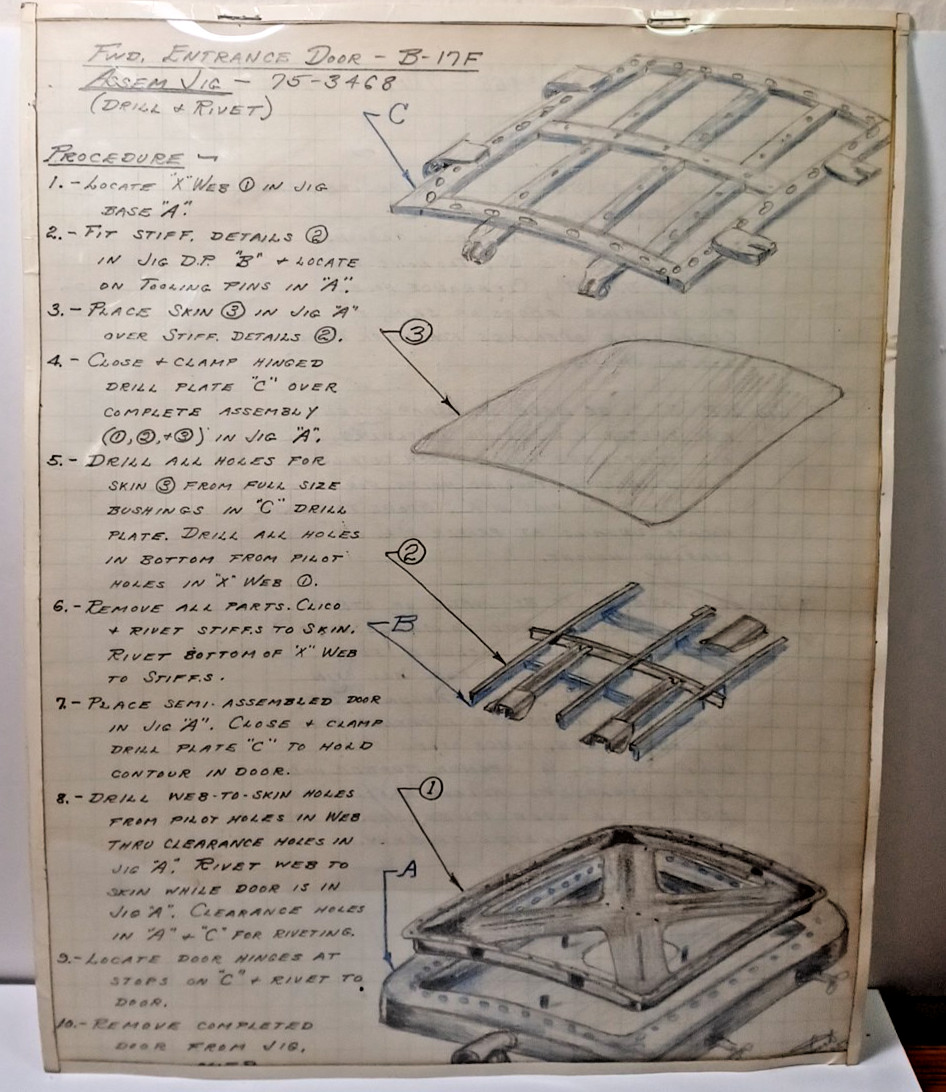 FWD. ENTRANCE DOOR - B-17F
ASSEM JIG - 75-3468
(DRILL + RIVET)
C
PROCEDURE -
1.- LOCATE "X" WEB ① IN JIG
BASE "A".
2.- FIT STIFF. DETAILS ②
IN JIG D.P. "B" + LOCATE
ON TOOLING PINS IN "A".
3.- PLACE SKIN ③ IN JIG "A"
OVER STIFF. DETAILS ②.
③
4.- CLOSE + CLAMP HINGED
DRILL PLATE "C" OVER
COMPLETE ASSEMBLY
(①,②,+③) IN JIG "A".
5.- DRILL ALL HOLES FOR
SKIN ③ FROM FULL SIZE
BUSHINGS IN "C" DRILL
PLATE. DRILL ALL HOLES
IN BOTTOM FROM PILOT
HOLES IN "X" WEB ①.
②
6.- REMOVE ALL PARTS. CLICO
+ RIVET STIFFS TO SKIN.
RIVET BOTTOM OF "X" WEB
TO STIFFS.
B
7.- PLACE SEMI-ASSEMBLED DOOR
IN JIG "A". CLOSE + CLAMP
DRILL PLATE "C" TO HOLD
CONTOUR IN DOOR.
8.- DRILL WEB-TO-SKIN HOLES
FROM PILOT HOLES IN WEB
THRU CLEARANCE HOLES IN
JIG "A". RIVET WEB TO
SKIN WHILE DOOR IS IN
JIG "A". CLEARANCE HOLES
IN "A" + "C" FOR RIVETING.
①
A
9.- LOCATE DOOR HINGES AT
STOPS ON "C" + RIVET TO
DOOR.
10.- REMOVE COMPLETED
DOOR FROM JIG.